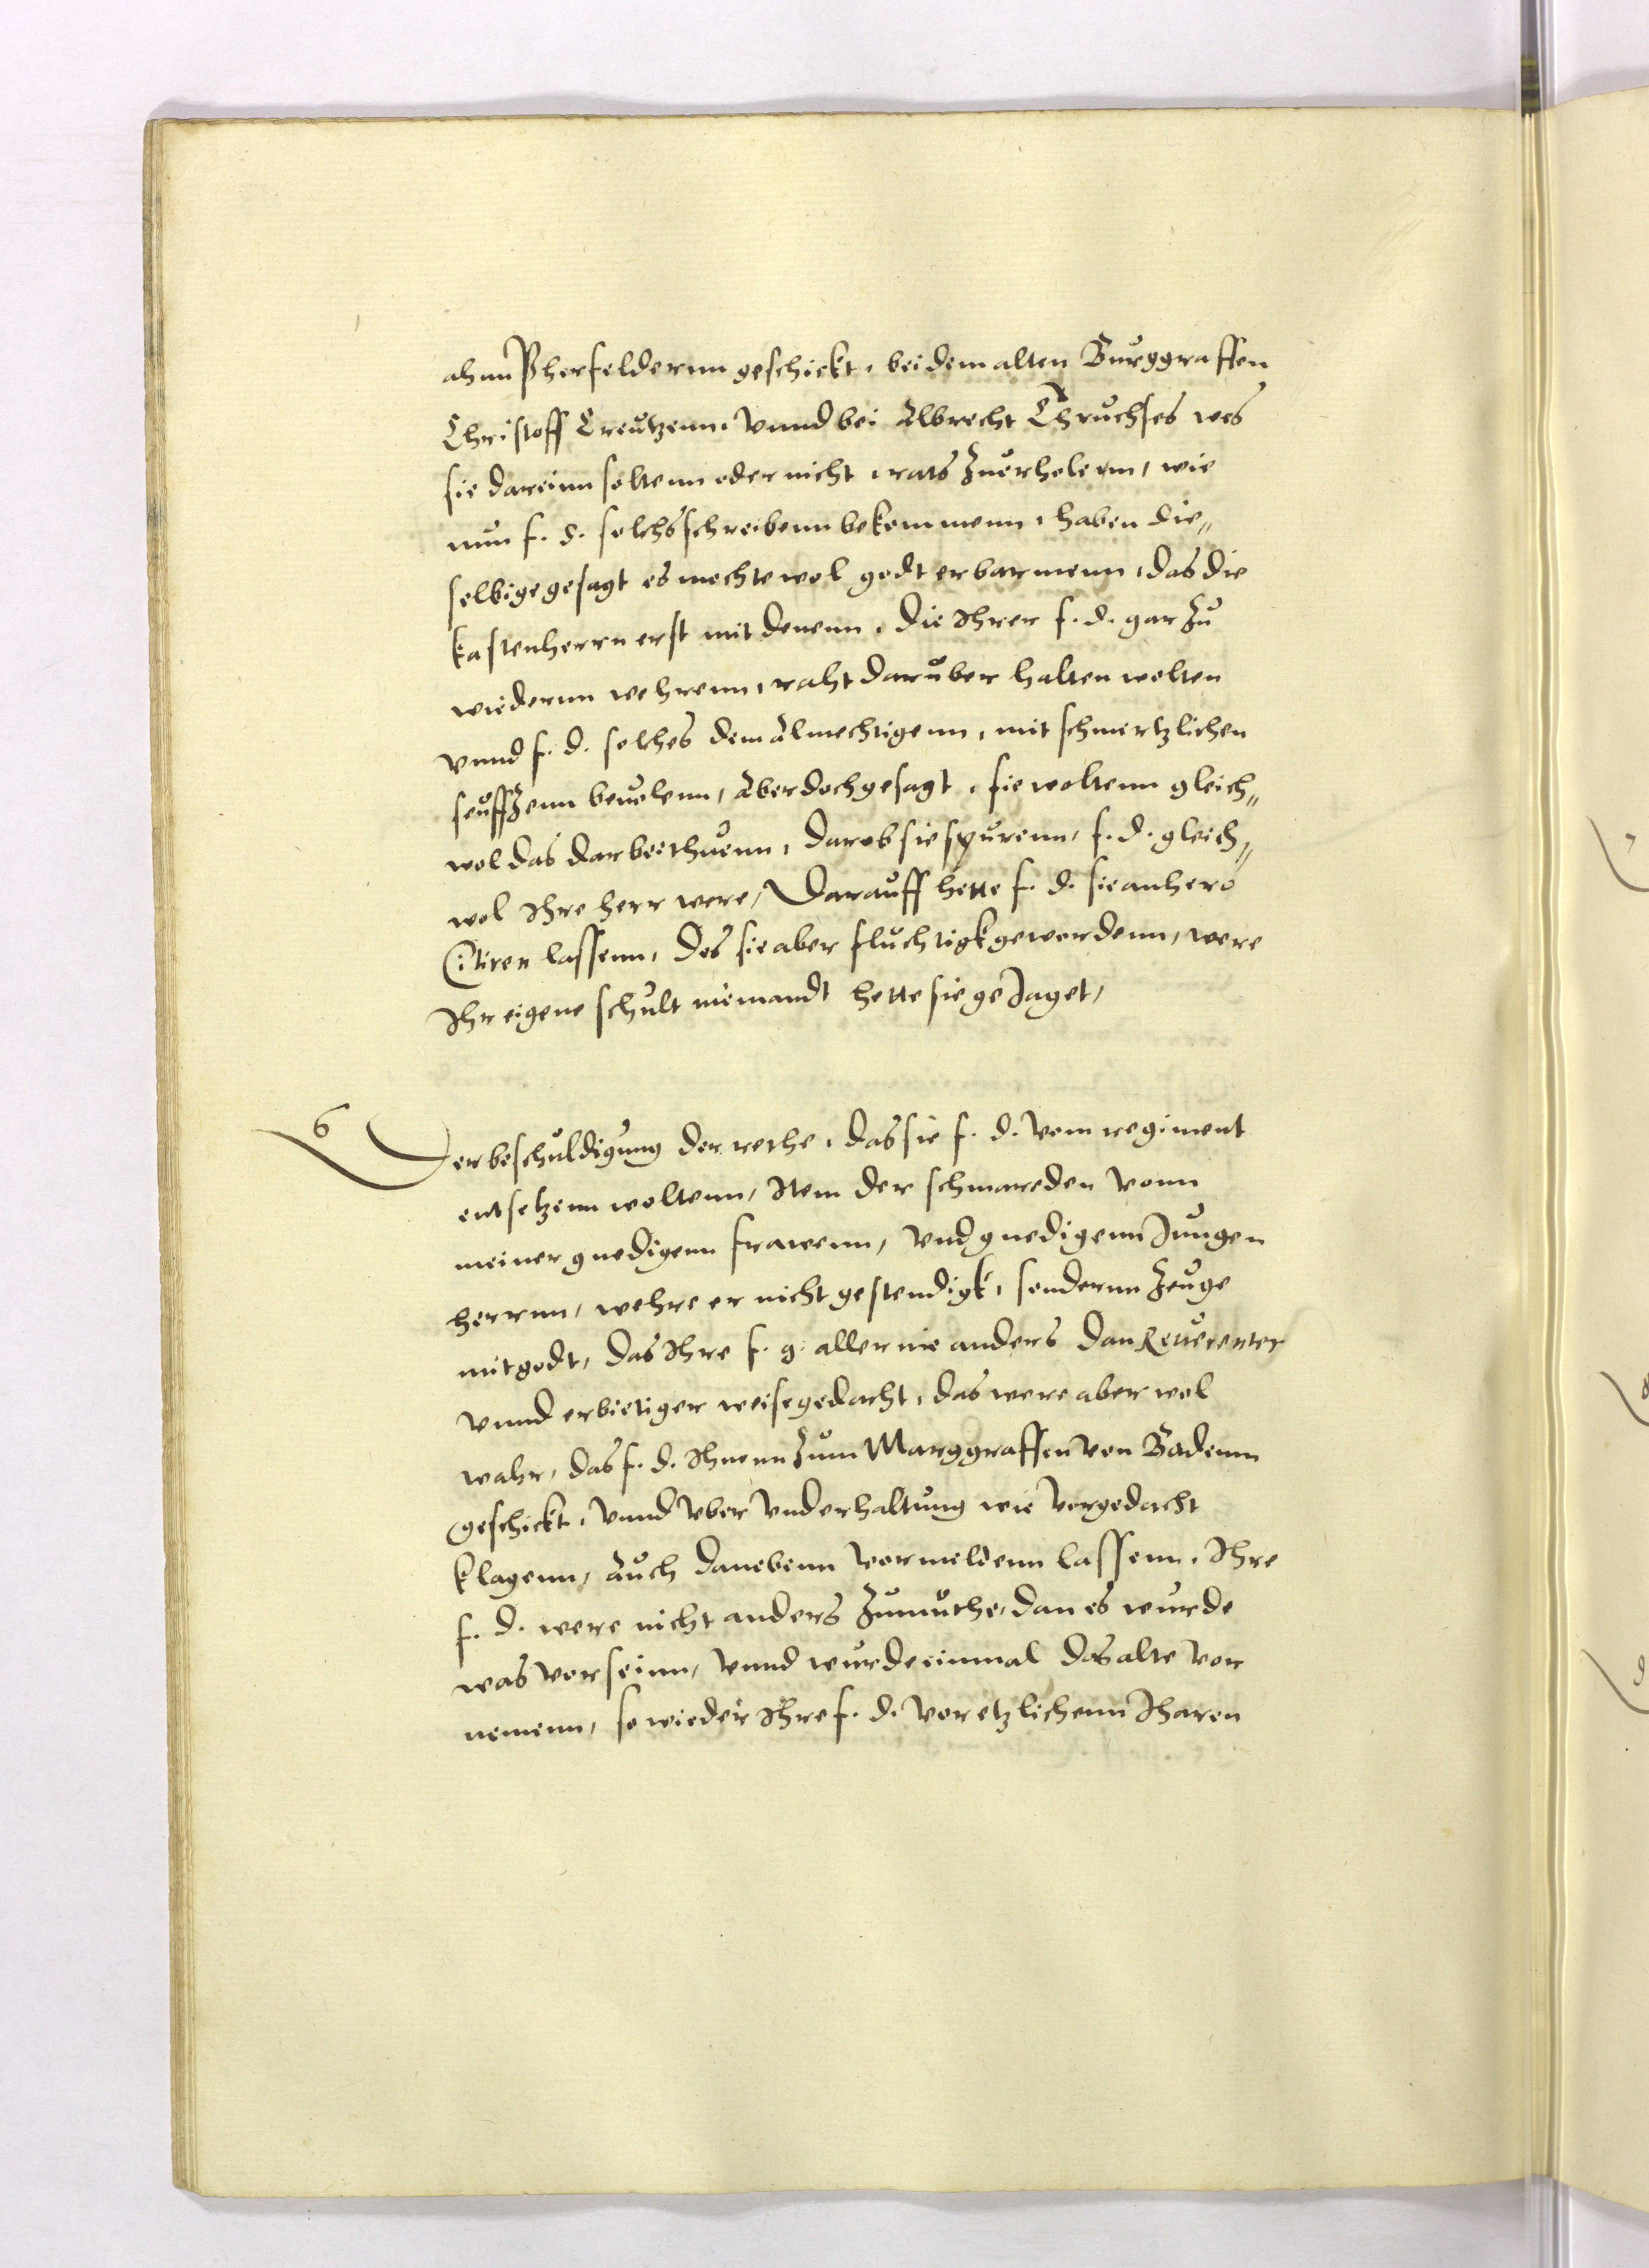 ahnn Pherfeldernn geschickt, bei dem alten Burggraffen
Christoff Creutzenn, vnnd bei Albrecht Thruchses wes
sie dareinn soltenn oder nicht, rats zuerholenn, wie
nun f. d. solchs schreibenn bekommenn, haben die„
selbige gesagt es mochte wol godt erbarmenn, das die
kastenherrn erst mit denenn, die Ihrer f. d. gar zu
wiedernn wehrenn, raht daruber halten wolten
vnnd f. d. solches dem Almechtigenn, mit schmertzlichen
seuffzenn beuolenn, Aber doch gesagt, sie woltenn gleich„
wol das darbei thuenn, darob sie spurenn, f. d. gleich„
wol Ihre herr were, Darauff hette f. d. sie anhero
Citiren lassenn, Das sie aber fluchtigk gewordenn, were
Ihr eigene schult niemandt hette sie geJaget,
6 Der beschuldigung der rethe, das sie f. d. vom regiment
entsetzenn woltenn, Item der schmareden vonn
meiner gnedigenn frawenn, vnd gnedigenn Jungen
herrnn, wehre er nicht gestendigk, sondernn zeuge
mit godt, das Ihre f. g. aller nie anders dan Reuerenter
vnnd erbietiger weise gedacht, das were aber wol
wahr, das f. d. Ihnenn zum Marggraffen von Badenn
geschickt, vnnd vber vnderhaltung wie vorgedacht
klagenn, auch danebenn vormeldenn lassenn, Ihre
f. d. were nicht anders zumuthe, dan es wurde
was vor seinn, vnnd wurde einmal das alte vor
nemenn, so wieder Ihre f. d. vor etzlichenn Iharen